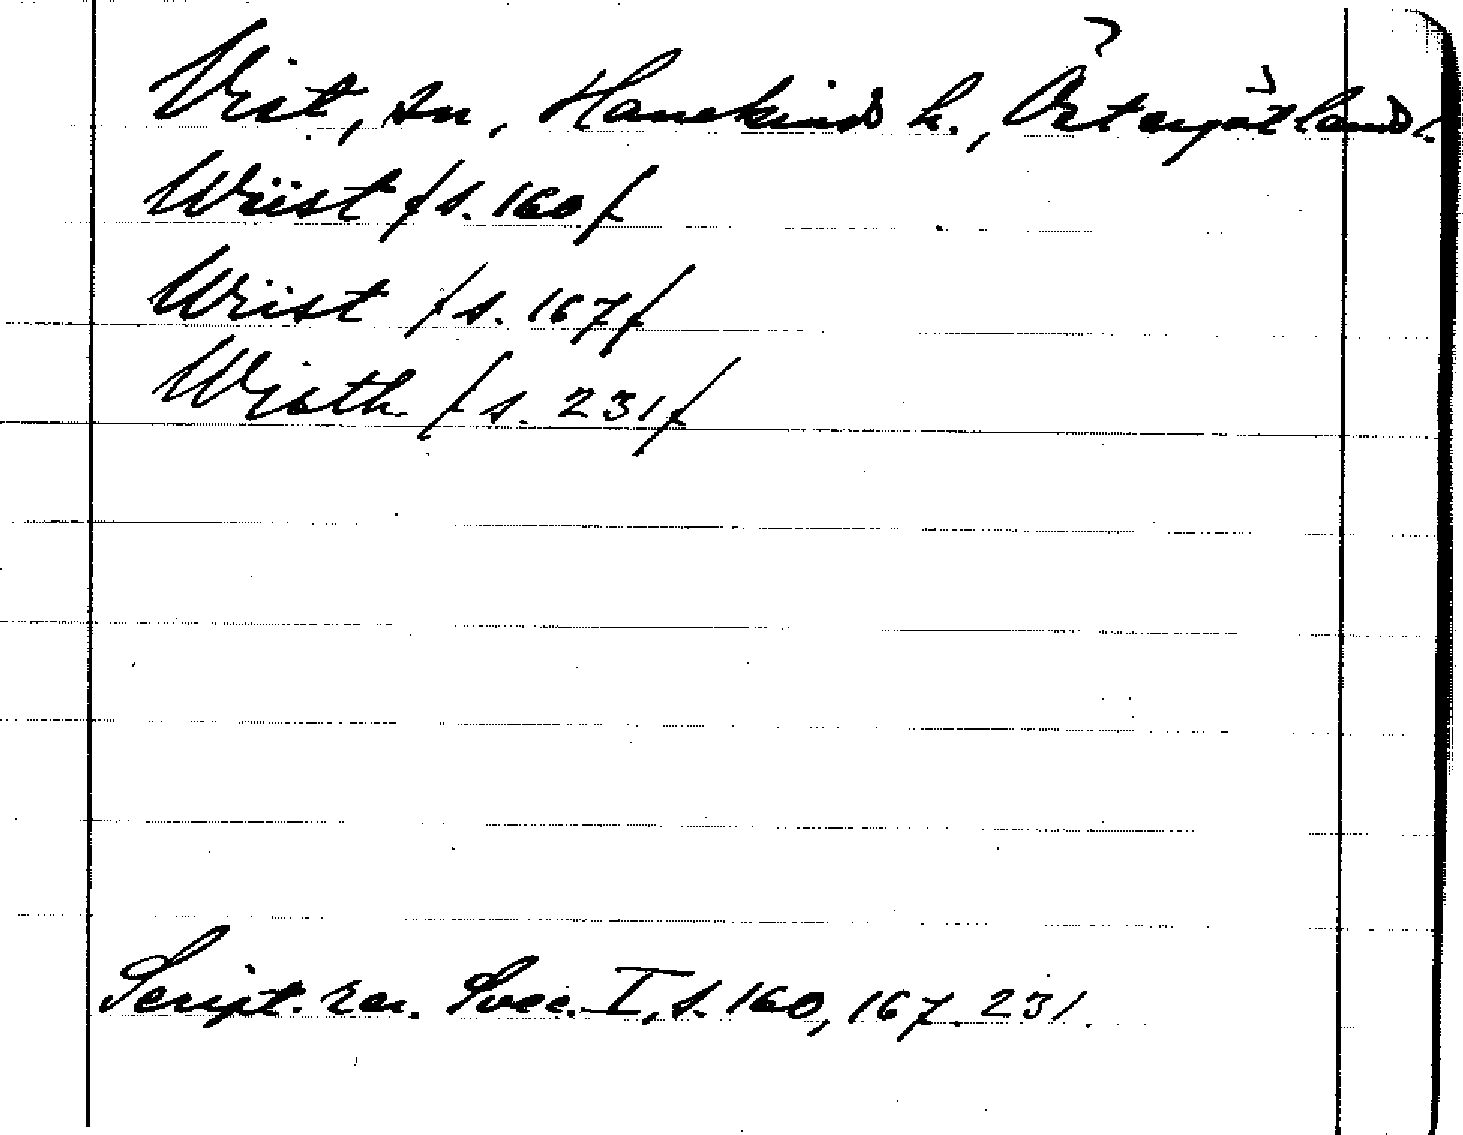 Vist, sn, Hanekinds h., Östergötland l.
Wiist /s. 160/
Wiist /s. 167/
Wisth /s. 231/
Script. rer. Svec. I, s. 160, 167, 231.